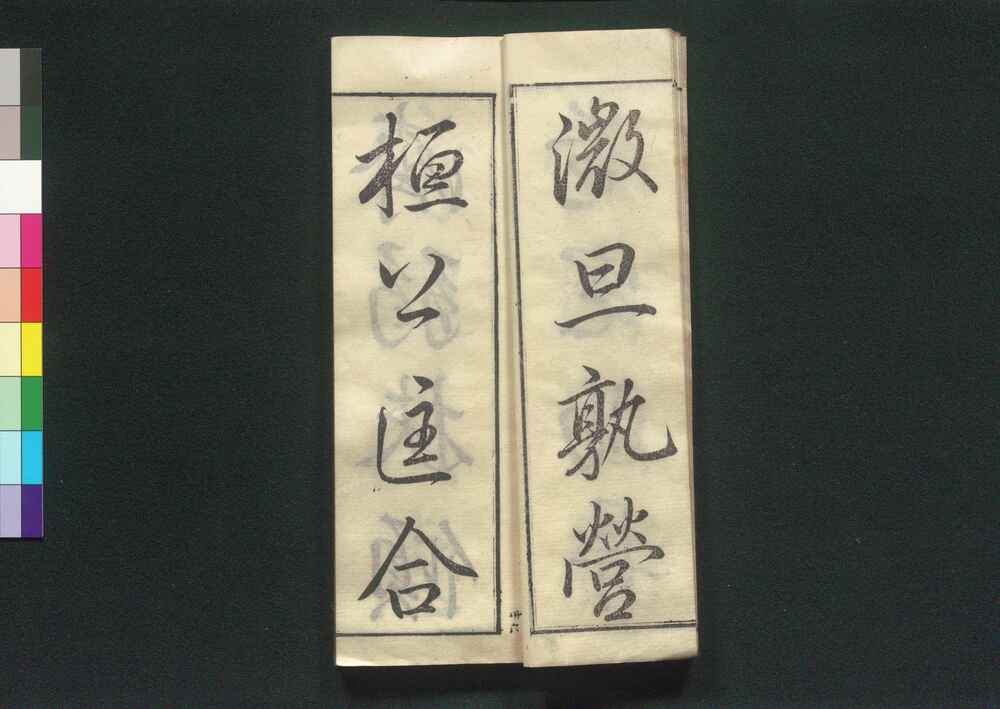 微旦孰營
桓公匡合
卅六